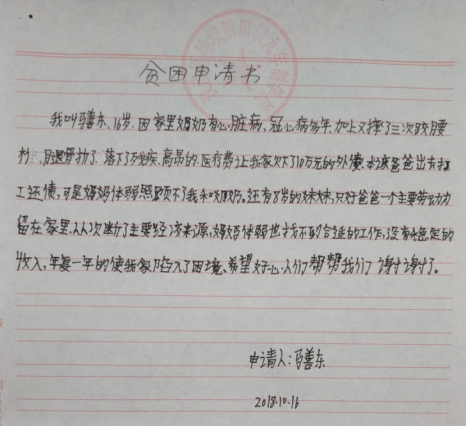 贫困申请书
我叫马善东、16岁、因家里奶奶有心脏病、冠心病多年、加上又摔了三次跤腰
、腿退骨折了、落下了残疾、高昂的医疗费让我家欠下了10万元的外债、本该爸爸出去打
工还债,可是妈妈体弱照顾不了我和奶奶。还有8岁的妹妹、只好爸爸一个主要劳动力
留在家里、从次断了主要经济来源,妈妈体弱也找不到合适的工作,没有稳定的
收入,年复一年的使我家陷入了困境、希望好心人们帮帮我们谢谢了。
申请人:马善东
2018.10.16